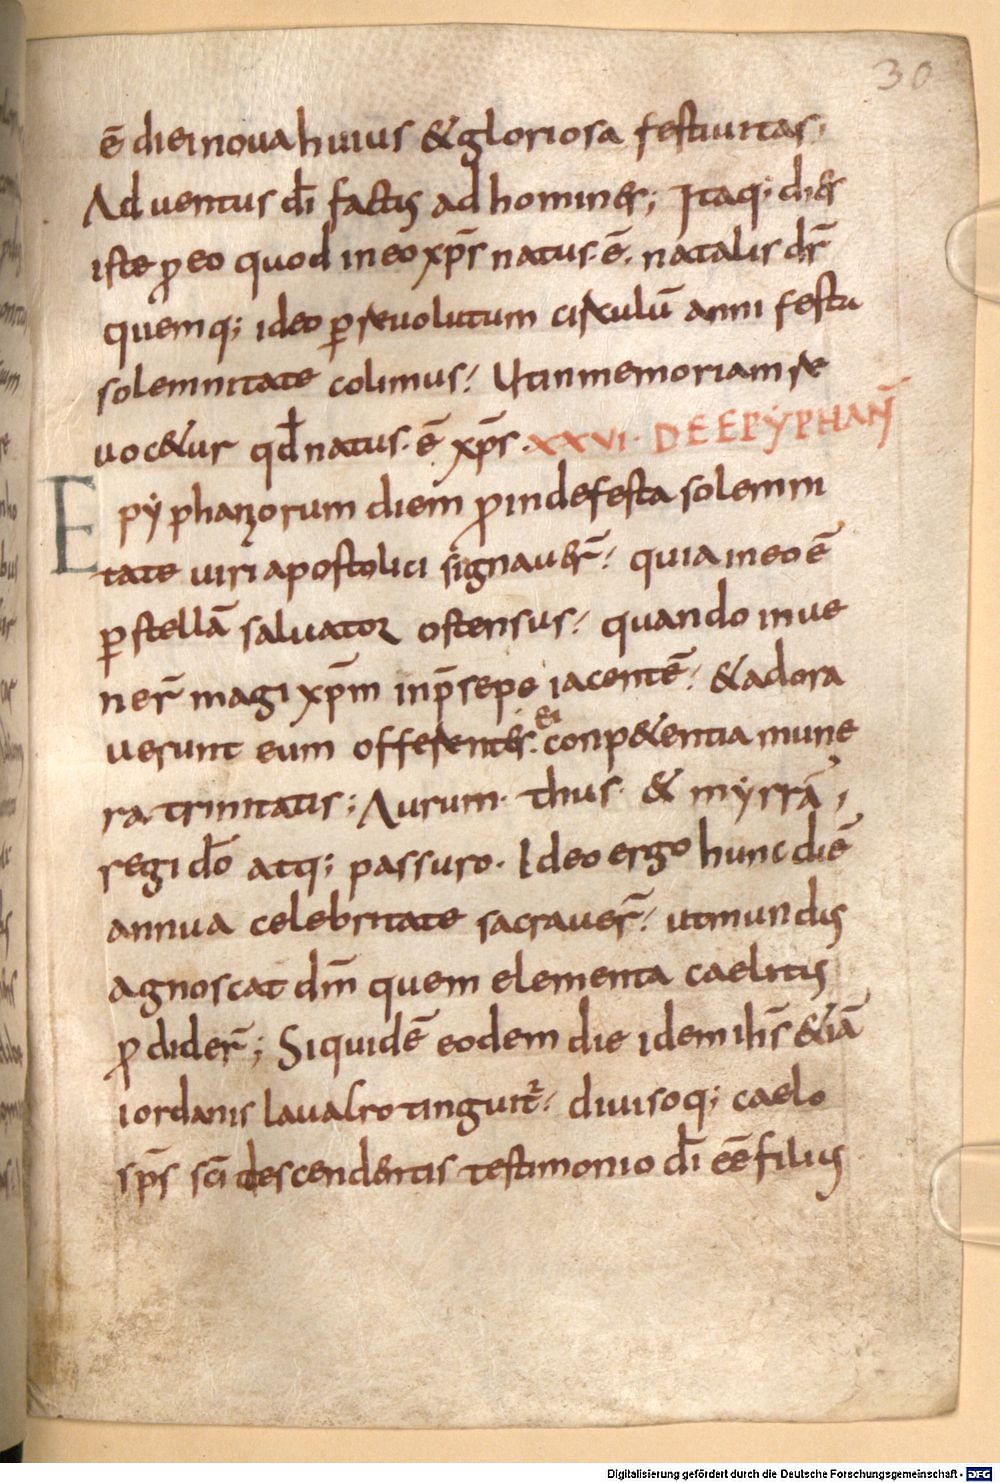 30
ē diei nova huius & gloriosa festiuitas;
Aduentus dī factus ad homin&s; Itaq; di&s
iste ꝓ eo quod in eo xp̄s natus·ē· natalis dr̄
quemq; ideo ꝑ reuolutum circulū anni festa
solemnitate colimus; Ut in memoriam re
uoc&ur qđ natus·ē· xp̄s· XXVI· DE EPẎPHAN̄
Epẏphaniorum diem ꝓinde festa solemni
tate uiri apostolici signauer̄; quia in eo ē
ꝑ stellā saluator ostensus; quando inue
ner̄ magi xp̄m in p̄sepe iacentē; & adora
uerunt eum offerent&s· ei conp&entia mune
ra trinitatis; Aurum· thus· & mẏrrā;
regi dō atq; passuro· Ideo ergo hunc diē
annua celebritate sacrauer̄; ut mundus
agnoscat dn̄m quem elementa caelitus
ꝓdider̄; Siquidē eodem die idem ih̄s &iā
iordanis lauacro tinguit̄; diuisoq; caelo
sp̄s sc̄i descend&ntis testimonio dī eē filius
Digitalisierung gefördert durch die Deutsche Forschungsgemeinschaft - DFG